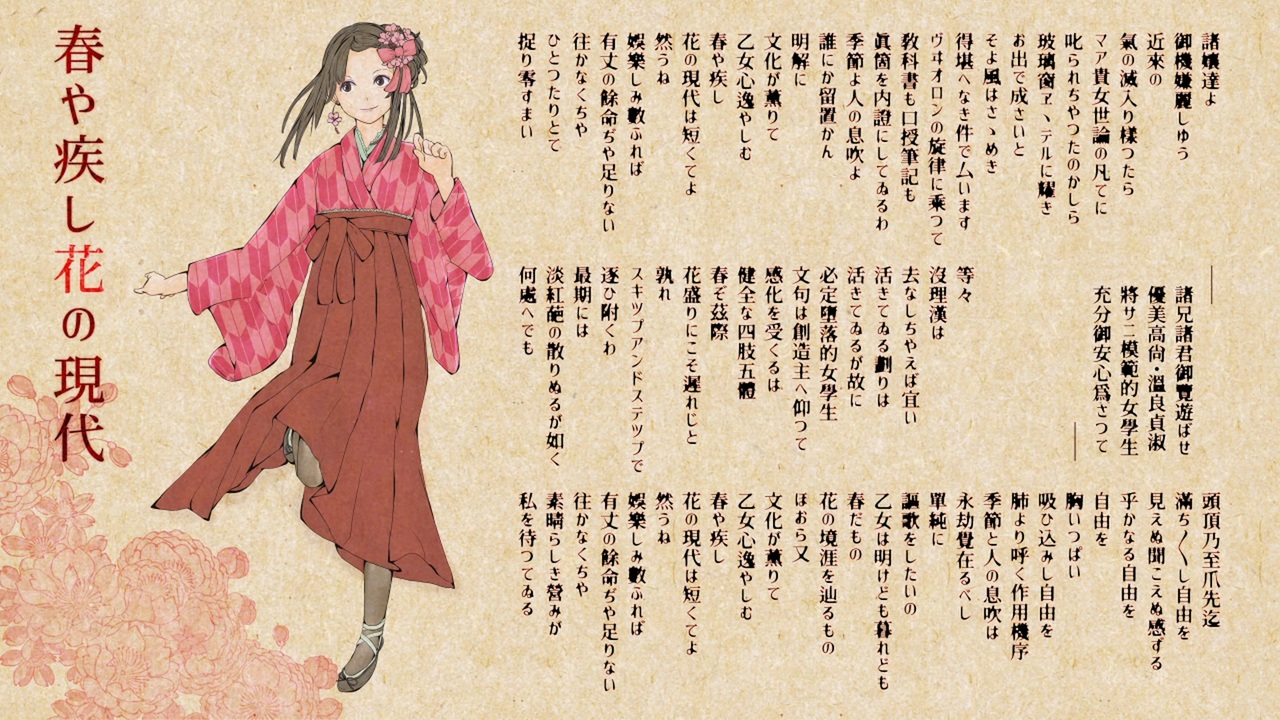 諸孃達よ
御機嫌麗しゆう
近來の
氣の滅入り樣つたら
マア貴女世論の凡てに
叱られちやつたのかしら
玻璃窗ヱヽテルに耀き
お出で成さいと
そよ風はさゝめき
得堪へなき件でム います
ヴヰオロンの旋律に乘つて
敎科書も口授筆記も
眞箇を内證にしてゐるわ
季節よ人の息吹よ
誰にか留置かん
明解に
文化が薰りて
乙女心逸やしむ
春や疾し
花の現代は短くてよ
然うね
娛樂しみ數ふれば
有丈の餘命ぢや足りない
往かなくちや
ひとつたりとて
捉り零すまい
諸兄諸君御覽遊ばせ
優美高尙・溫良貞淑
將サニ模範的女學生
充分御安心爲さつて
等々
沒理漢は
去なしちやえば宜い
活きてゐる劃りは
活きてゐるが故に
必定墮落的女學生
文句は創造主へ仰つて
感化を受くるは
健全な四肢五體
春ぞ茲際
花盛りにこそ遲れじと
孰れ
スキツプアンドステツプで
逐ひ附くわ
最期には
淡紅葩の散りぬるが如く
何處へでも
頭頂乃至爪先迄
滿ち〳〵し自由を
見えぬ聞こえぬ感ずる
乎かなる自由を
自由を
胸いつぱい
吸ひ込みし自由を
肺より呼く作用機序
季節と人の息吹は
永劫覺在るべし
單純に
謳歌をしたいの
乙女は明けども暮れども
春だもの
花の境涯を辿るもの
ほおら又
文化が薰りて
乙女心逸やしむ
春や疾し
花の現代は短くてよ
然うね
娛樂しみ數ふれば
有丈の餘命ぢや足りない
往かなくちや
素晴らしき營みが
私を待つてゐる
春や疾し花の現代